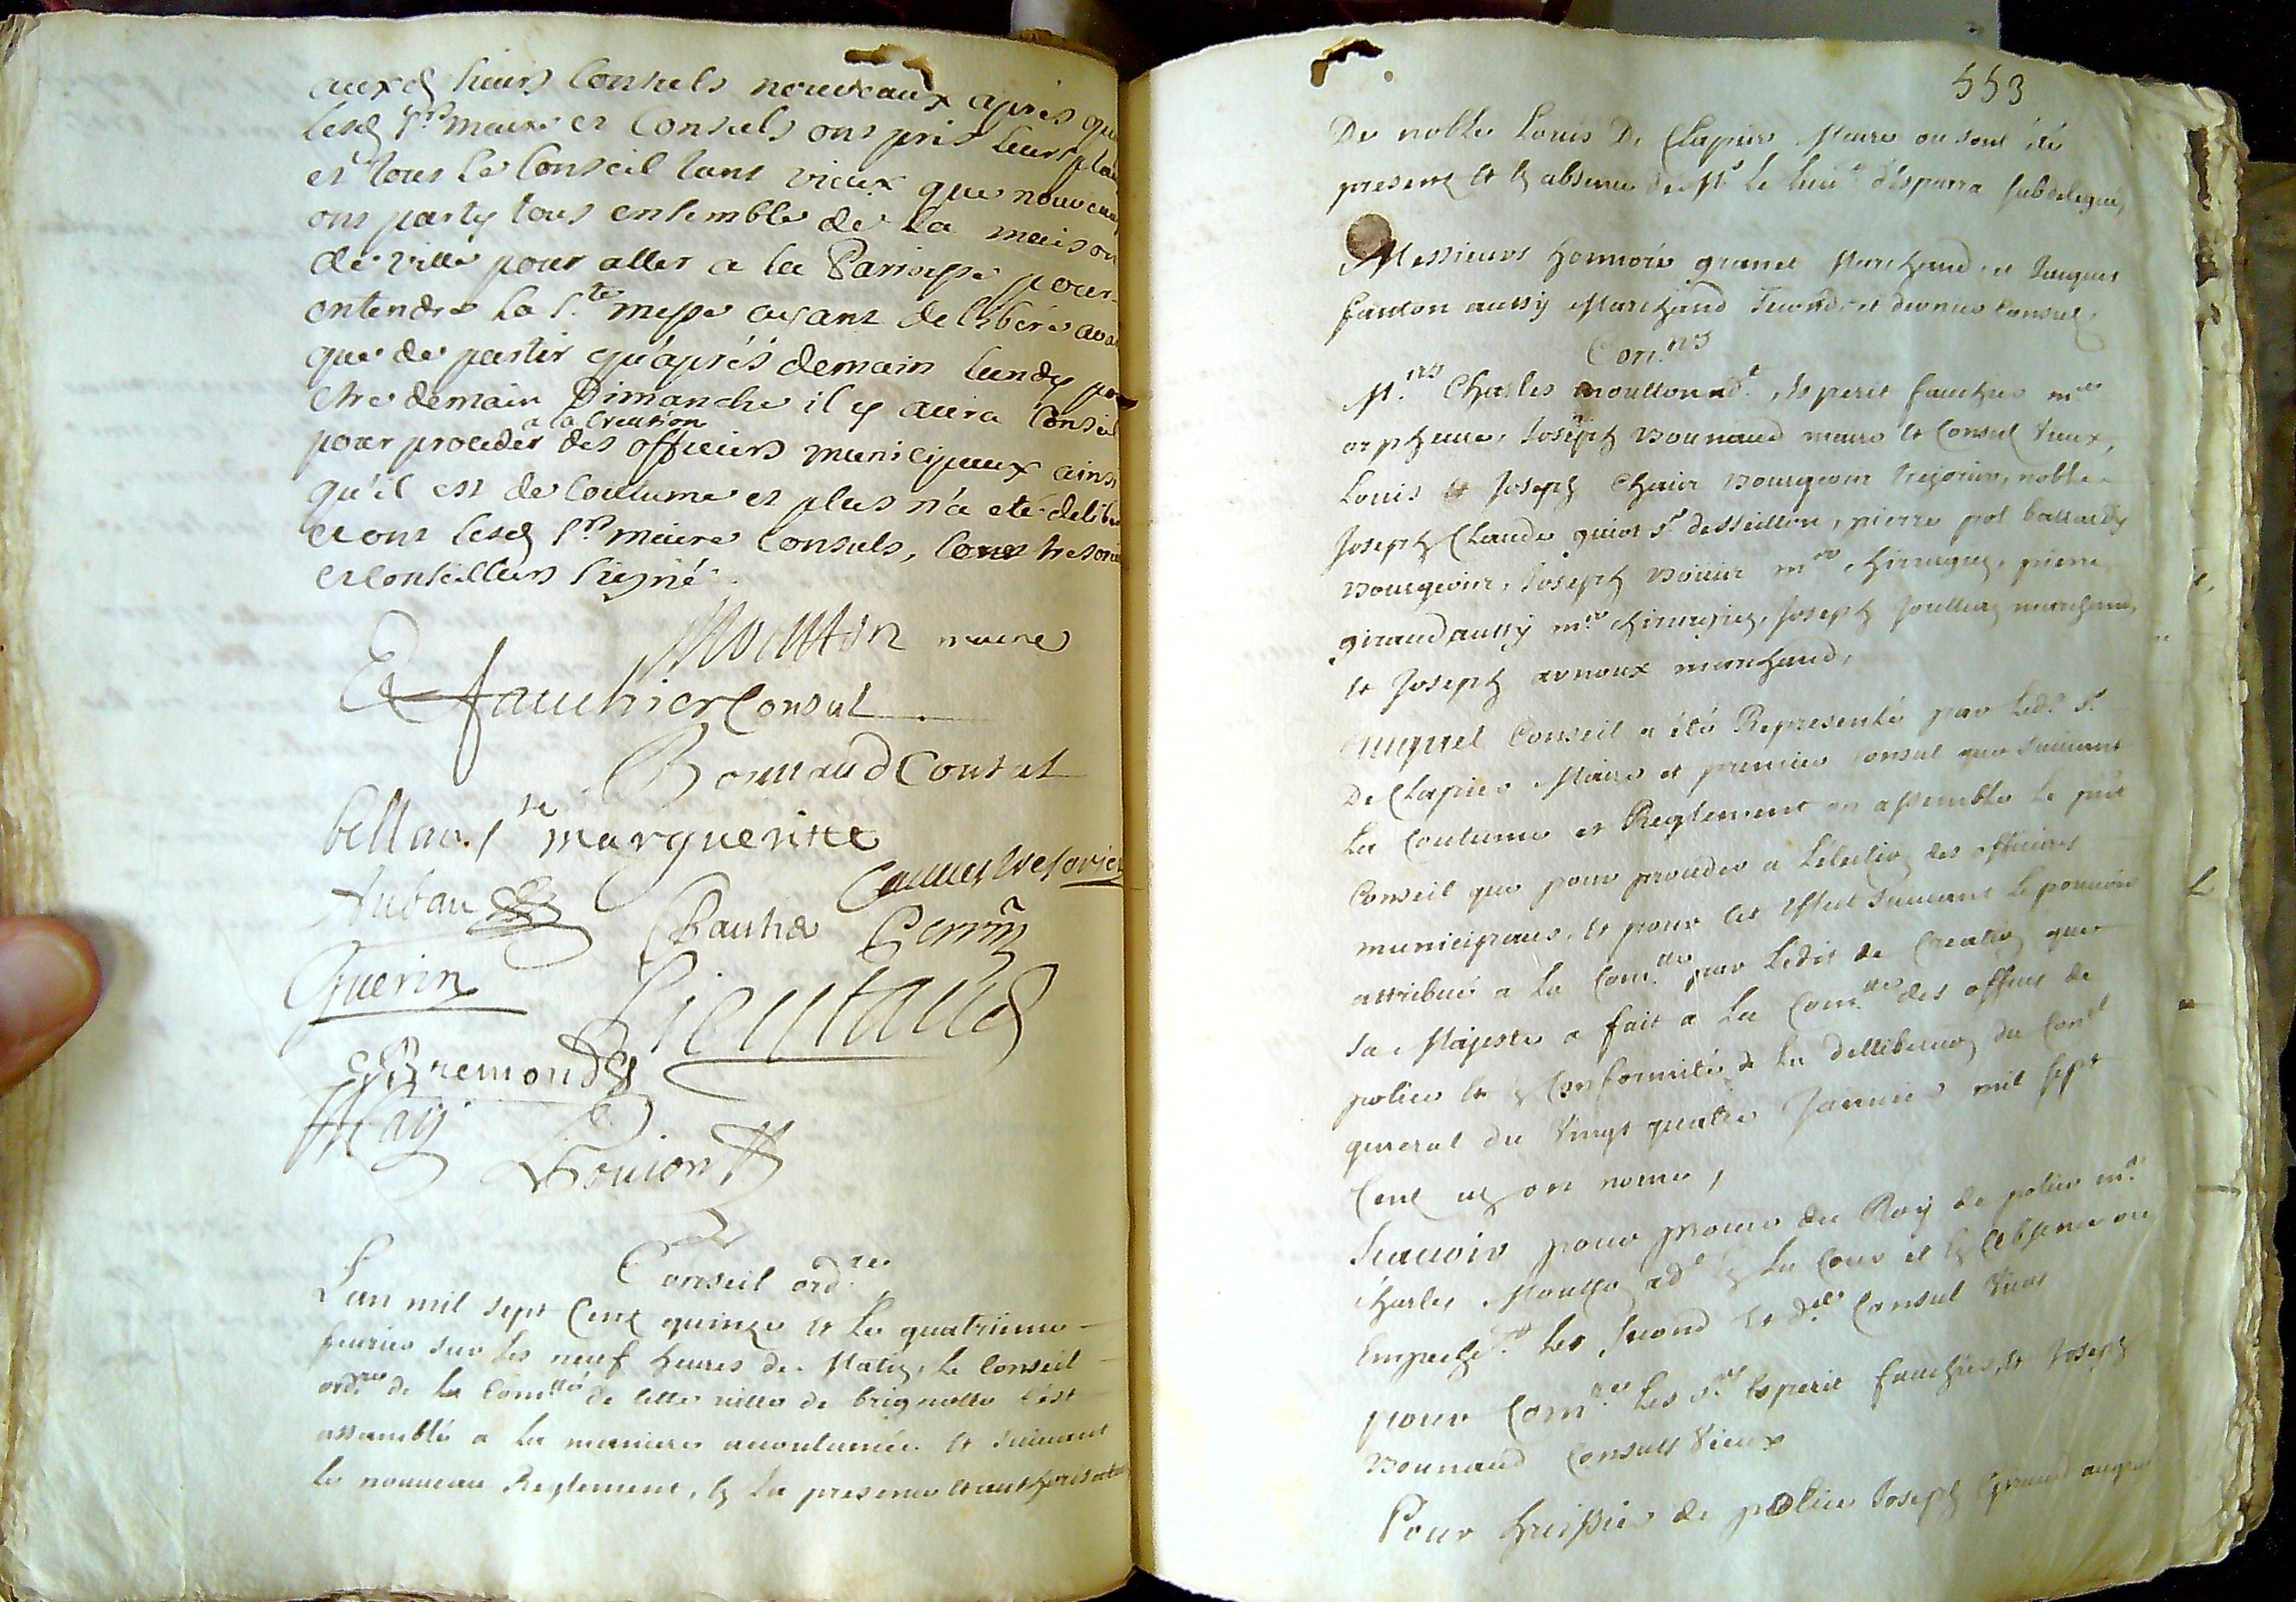 auxd sieurs Consuls nouveaux apres que
lesd srs maire et Consuls ont pris leurs plac
et tous le Conseil tant vieux que nouveau
ont party tous ensemble de la maison
de ville pour aller a la Parroisse pour
entendre la Ste messe ayant deliberé avan
que de partir qu'aprés demain lundy pour
etre demain Dimanche il y aura Conseil
a la Creation
pour proceder des officiers municipaux ainsi
qu'il est de Coutume et plus n'a eté deliber
et ont lesd srs maire Consuls, tresorier
et Conseillers signé
Moutton maire
E fauchier Consul
Bonnaud Consul
bellon. ste margueritte
tresorier
Auban
Gautier Perrin
Guerin
Lieutaud
Bremond
May
Goujon
Conseil ordre
L'an mil sept Cent quinze et le quatrieme
feurier sur les neuf heures de Matin, le Conseil
ordre de la Comtté de cette ville de brignolle s'est
assemblé a la maniere accoutumée et suivant
le nouveau Reglement, en la presence et authorisation
553
De noble Louis De Clapier Maire ou sont été
present et en absence de Mr le lieut d'esparra subdelegué,
Messieurs honnoré granet Marchand, et Jacques
fanton aussy Marchand second et dernier Consul,
Conrs
Mrs Charles moutton adt, Esperit fauchier mre
orpheure, Joseph Bonnaud maire et Consul vieux,
Louis et Joseph Chaix Bourgeois tresorier, noble
Joseph Claude guiot sr desseillon, pierre pol
Bourgeois, Joseph mre Chirurgien, pierre
giraud aussy mre Chirurgien, Joseph marchand,
et Joseph arnoux marchand,
Auquel Conseil a été Representé par led. sr
De Clapier Maire et premier Consul que suivant
la Coutume et Reglement on assemble le pnt
Conseil que pour proceder a l'election des officiers
municipaux, et pour cet effet suivant le pouvoir
attribué a la Comtté par l'edit de Creation que
sa Majesté a fait a la Comtté des offices de
police et en Conformité de la delliberation du Conel
general du vingt quatre Janvier mil sept
Cent on nomé,
Scauoir pour procur du Roy de police mr
Charles Moutton adt en la Cour et en absence ou
Empecht. les second et dr Consul vieux
pour Comres les srs Esperit fauchier, et Joseph
Bonnaud Consuls vieux
Pour huissier de police Joseph auquel